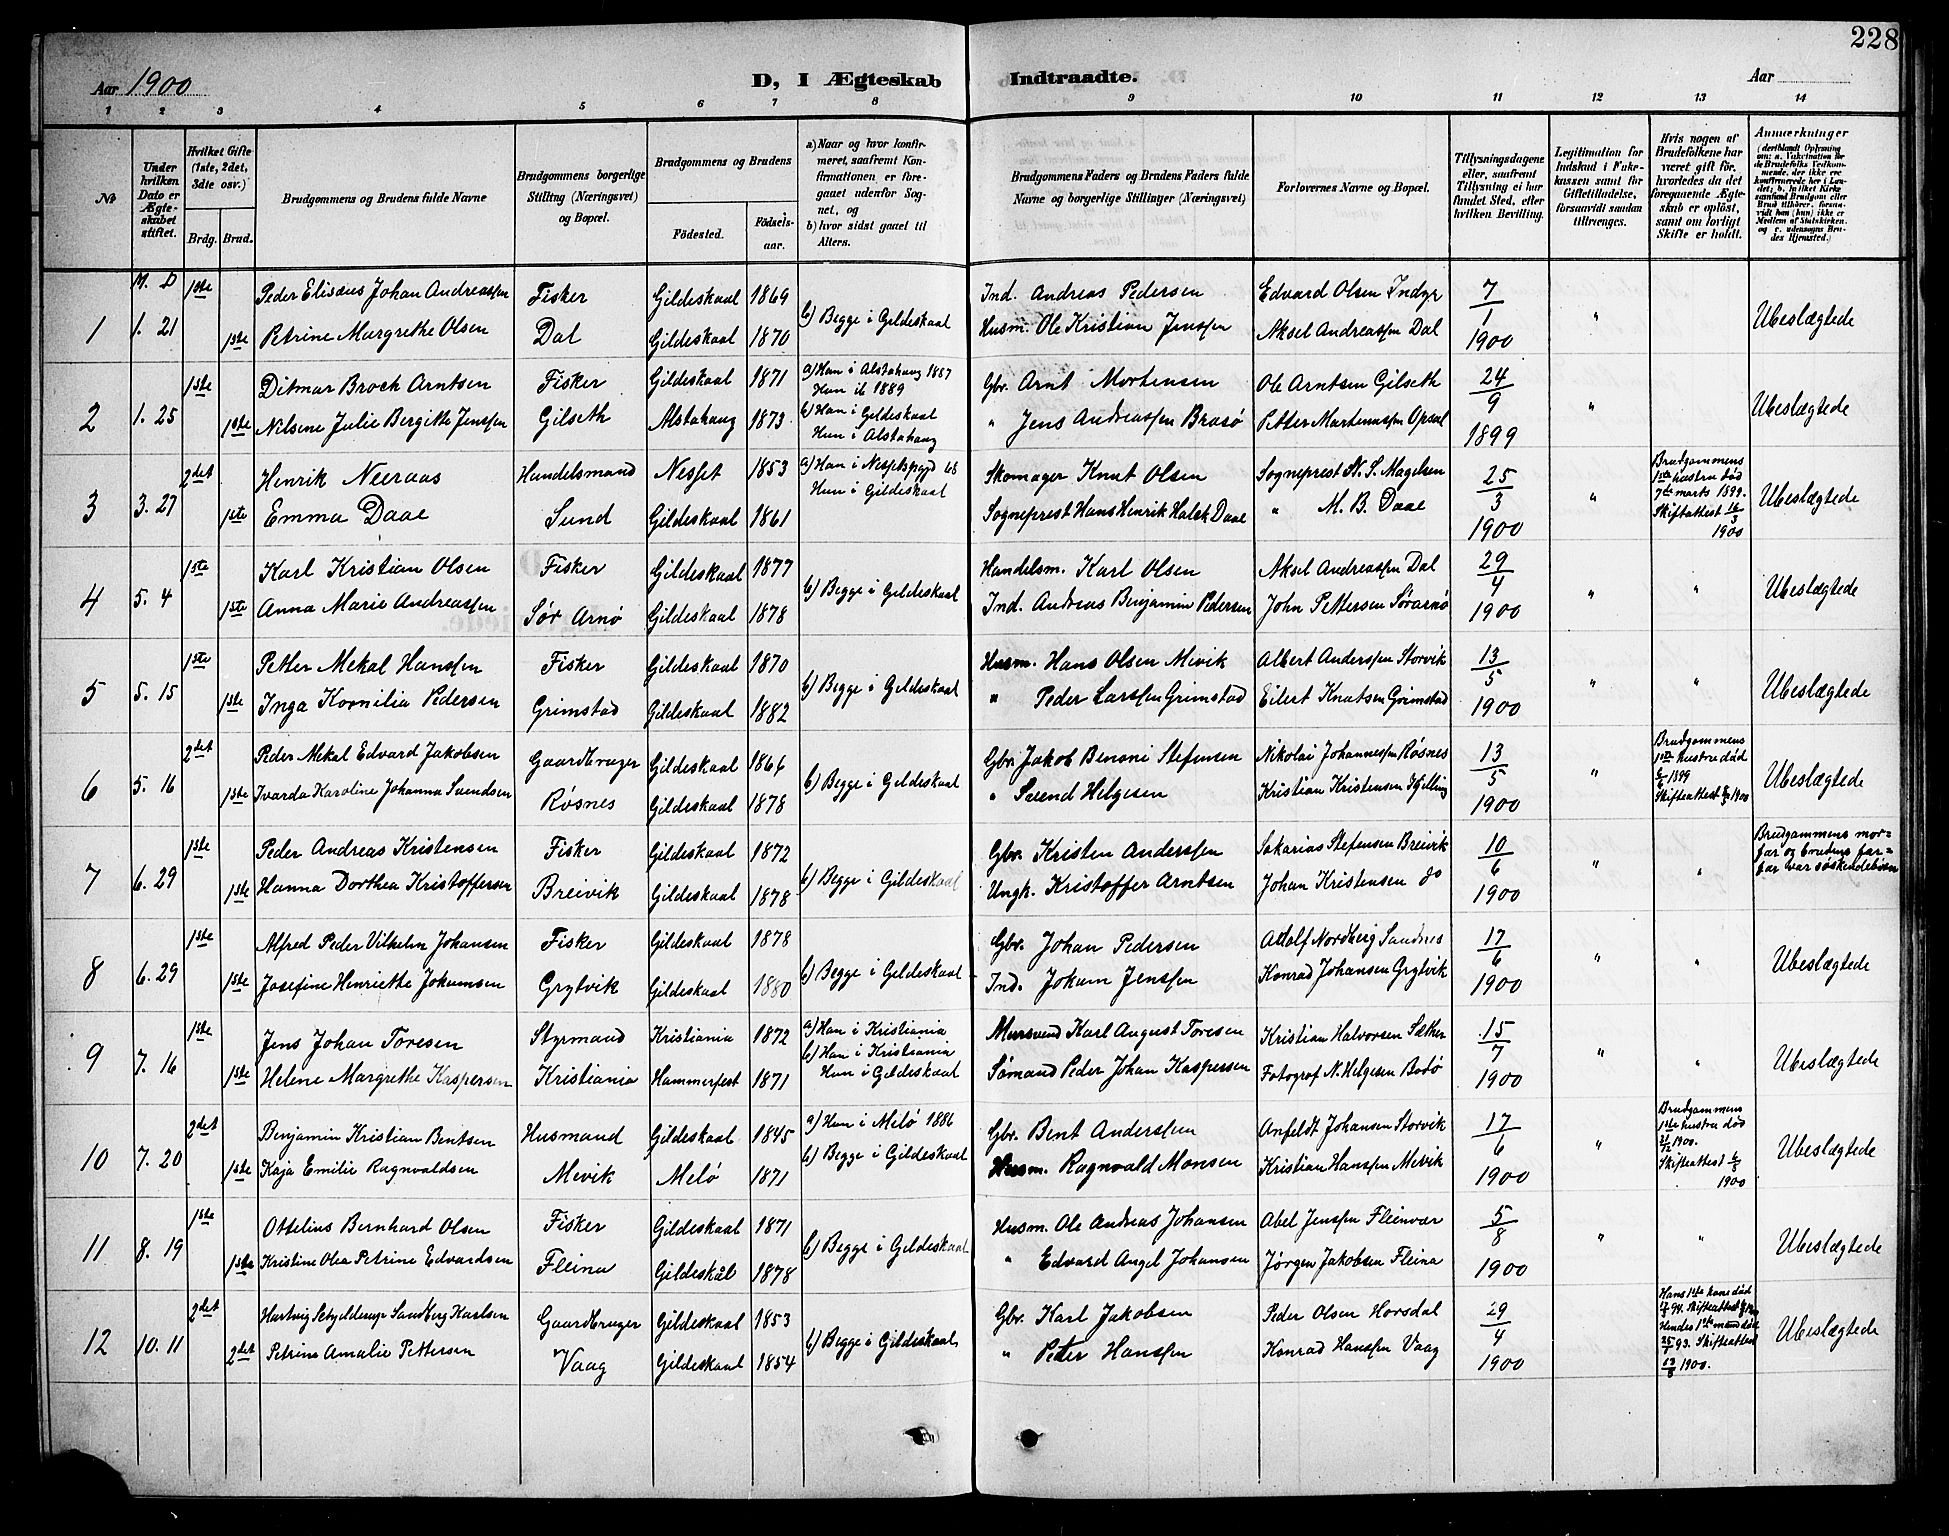 228
Aar 1900
D, I Ægteskab Indtraadte.
Aar
1 2 3 4 5 6 7 8 9 10 11 12 13 14
№
Under hvilken Dato er Ægteskabet stiftet.
Hvilket Gifte (1ste, 2det, 3die osv.)
Brdg. Brud.
Brudgommens og Brudens fulde Navne
Brudgommens borgerlige Stilling (Næringsvei) og Bopæl.
Brudgommens og Brudens
Fødested. Fødselsaar.
a) Naar og hvor konfirmeret, saafremt Konfirmationen er foregaaet udenfor Sognet, og
b) hvor sidst gaaet til Alters.
Brudgommens Faders og Brudens Faders fulde Navne og borgerlige Stillinger (Næringsvei)
Forlovernes Navne og Bopæl.
Tillysningsdagene eller, saafremt Tillysning ei har fundet Sted, efter hvilken Bevilling.
Legitimation for Indskud i Enkekassen samt for Giftetilladelse, forsaavidt saadan tiltrænges.
Hvis nogen af Brudefolkene har været gift før, hvorledes da det foregaaende Ægteskab er opløst, samt om lovligt Skifte er holdt.
Anmærkninger
M. D
1 1. 21 1ste Peder Elisæus Johan Andreassen Fisker Gildeskaal 1869 b) Begge i Gildeskaal Ind. Andreas Pedersen Edvard Olsen Indyr 7/1 1900 " Ubeslægtede
1ste Petrine Margrethe Olsen Dal Gildeskaal 1870 Husm. Ole Kristian Jenssen Aksel Andreassen Dal
2 1. 25 1ste Ditmar Broch Arntsen Fisker Gildeskaal 1871 a) Han i Alstahaug 1887 Hun it 1889 Gbr. Arnt Mortensen Ole Arntsen Gilseth 24/9 1899 " Ubeslægtede
1ste Nilsine Julie Bergitte Jenssen Gilseth Alstahaug 1873 b) Han i Gildeskaal Hun i Alstahaug " Jens Andreassen Brasø Petter Martinussen Opsal
3 3. 27 2det Henrik Neeraas Handelsmand Nesset 1853 a) Han i Nessetspgjd 68 Hun i Gildeskaal Skomager Knut Olsen Sogneprest N. S. Magelsen 25/3 1900 " Brudgommens 1ste hustru død 7de marts 1899. Skifteattest 16/3 1900 Ubeslægtede
1ste Emma Daae Sund Gildeskaal 1861 Sogneprest Hans Henrik Halck Daae " M. B. Daae
4 5. 4 1ste Karl Kristian Olsen Fisker Gildeskaal 1877 b) Begge i Gildeskaal Handelsm. Karl Olsen Aksel Andreassen Dal 29/4 1900 " " Ubeslægtede
1ste Anna Marie Andreassen Sør Arnø Gildeskaal 1878 Ind. Andreas Benjamin Pedersen John Pettersen Sørarnø
5 5. 15 1ste Petter Mekal Hanssen Fisker Gildeskaal 1870 b) Begge i Gildeskaal Husm. Hans Olsen Mevik Albert Anderssen Storvik 13/5 1900 " " Ubeslægtede
1ste Inga Kornilia Pedersen Grimstad Gildeskaal 1882 " Peder Larssen Grimstad Eilert Knutsen Grimstad
6 5. 16 2det Peder Mekal Edvard Jakobsen Gaardbruger Gildeskaal 1866 b) Begge i Gildeskaal Gbr. Jakob Benoni Stefensen Nikolai Johannessen Røsnes 13/5 1900 " Brudgommens 1ste hustru død 6/6 1899 Skifteattest 1900 Ubeslægtede
1ste Ivarda Karoline Johanna Svendsen Røsnes Gildeskaal 1878 " Svend Helgesen Kristian Kristensen Kjelling
7 6. 29 1ste Peder Andreas Kristensen Fisker Gildeskaal 1872 b) Begge i Gildeskaal Gbr. Kristen Anderssen Sakarias Stefensen Breivik 10/6 1900 " " Brudgammens morfar og brudens farfar var søskendebörn
1ste Hanna Dorthea Kristoffersen Breivik Gildeskaal 1878 Ungk. Kristoffer Arntsen Johan Kristensen do
8 6. 29 1ste Alfred Peder Vilhelm Johansen Fisker Gildeskaal 1878 b) Begge i Gildeskaal Gbr. Johan Pedersen Adolf Nordberg Sandnes 17/6 1900 " " Ubeslægtede
1ste Josefine Henriette Jokumsen Grytvik Gildeskaal 1880 Ind. Jokum Jenssen Konrad Johansen Grytvik
9 7. 16 1ste Jens Johan Toresen Styrmand Kristiania 1872 a) Han i Kristiania b) Han i Kristiania Hun i Gildeskaal Mursvend Karl August Toresen Kristian Halvorsen Sæther 15/7 1900 " " Ubeslægtede
1ste Helene Margrethe Kaspersen Kristiania Hammerfest 1871 Sømand Peder Johan Kaspersen Fotograf N. Helgesen Bodø
10 7. 20 2det Benjamin Kristian Bentsen Husmand Gildeskaal 1845 a) Hun i Melø 1886 Gbr. Bent Anderssen Anfeldt Johansen Storvik 17/6 1900 " Brudgommens 1ste hustru død 21/2 1900. Skifteattest 1900 Ubeslægtede
1ste Kaja Emilie Ragnvaldsen Mevik Melø 1871 b) Begge i Gildeskaal Husm. Ragnvald Monsen Kristian Hanssen Mevik
11 8. 19 1ste Ottelius Bernhard Olsen Fisker Gildeskaal 1871 b) Begge i Gildeskaal Husm. Ole Andreas Johansen Abel Jenssen Fleinvær 5/8 1900 " " Ubeslægtede
1ste Kristine Olea Petrine Edvardsen Fleina Gildeskål 1878 " Edvard Angel Johansen Jørgen Jakobsen Fleina
12 10. 11 2det Hartvig Schjelderup Sandberg Karlsen Gaardbruger Gildeskaal 1853 b) Begge i Gildeskaal Gbr. Karl Jakobsen Peder Olsen Horsdal 29/4 1900 Hans 1ste kone død 94. Skifteattest Hendes 1ste mand død 93. Skifteattest 13/8 1900. Ubeslægtede
2det Petrine Amalie Pettersen Vaag Gildeskaal 1854 " Peter Hanssen Konrad Hanssen Vaag